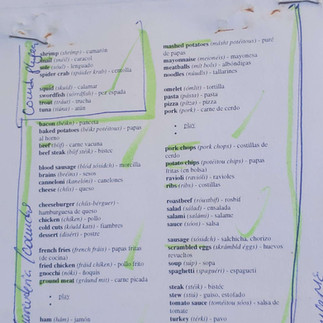 shrimp (shrimp) - camarón
snail (snéil) - caracol
sole (sóul) - lenguado
spider crab (spáider kráb) - centolla
squid (skuíd) - calamar
swordfish (sórdfish) - pez espada
trout (tráut) - trucha
tuna (túna) - atún
bacon (béikn) - panceta
baked potatoes (béikt potéitous) - papas
al horno
beef (bíif) - carne de vaca
beef steak (bíif stéik) - bistec
blood sausage (blad sósadsh) - morcilla
brains (bréins) - sesos
cannelloni (kanelóni) - canelones
cheese (chíis) - queso
cheeseburger (chíis-bérguer) -
hamburguesa de queso
chicken (chíken) - pollo
cold cuts (kould kats) - fiambres
dessert (disért) - postre
french fries (french fráis) - papas fritas
(de cocina)
fried chicken (fráid chíken) - pollo frito
gnocchi (nóki) - ñoquis
ground meat (gráund mit) - carne picada
play
ham (ham) - jamón
mashed potatoes (máscht potéitous) - puré
de papas
mayonnaise (meionéis) - mayonesa
meatballs (mít bols) - albóndigas
noodles (núudls) - tallarines
omelet (ómlet) - tortilla
pasta (pásta) - pasta
pizza (pítza) - pizza
pork (pork) - carne de cerdo
play
pork chops (pork chops) - costillas de
cerdo
potato chips (potéitou chips) - papas
fritas (en bolsa)
ravioli (ravióli) - ravioles
ribs (ribs) - costillas
roastbeef (róustbif) - rosbif
salad (sálad) - ensalada
salami (salámi) - salame
sauce (sóos) - salsa
sausage (sósadsh) - salchicha, chorizo
scrambled eggs (skrámbld égs) - huevos
revueltos
soup (súp) - sopa
spaghetti (spaguéti) - espagueti
steak (stéik) - bistéc
stew (stiú) - guiso, estofado
tomato sauce (toméitou sóos) - salsa de
tomate
turkey (térki) - pavo